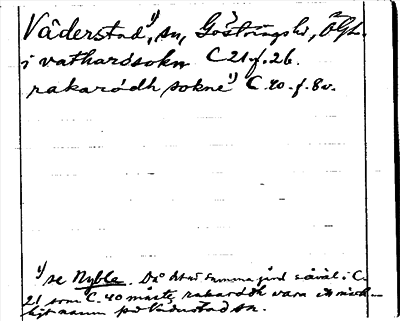 Väderstad¹⁾, sn, Göstrings hd, Ögl.
i vathar sokn C 21 f. 26.
rakarödh sokne¹⁾ C. 40. f. 8v.
¹⁾ se Nybble. Då det är samma jord såväl i C.
21 som C. 40 måste rakarödh vara
namn på Väderstad sn.